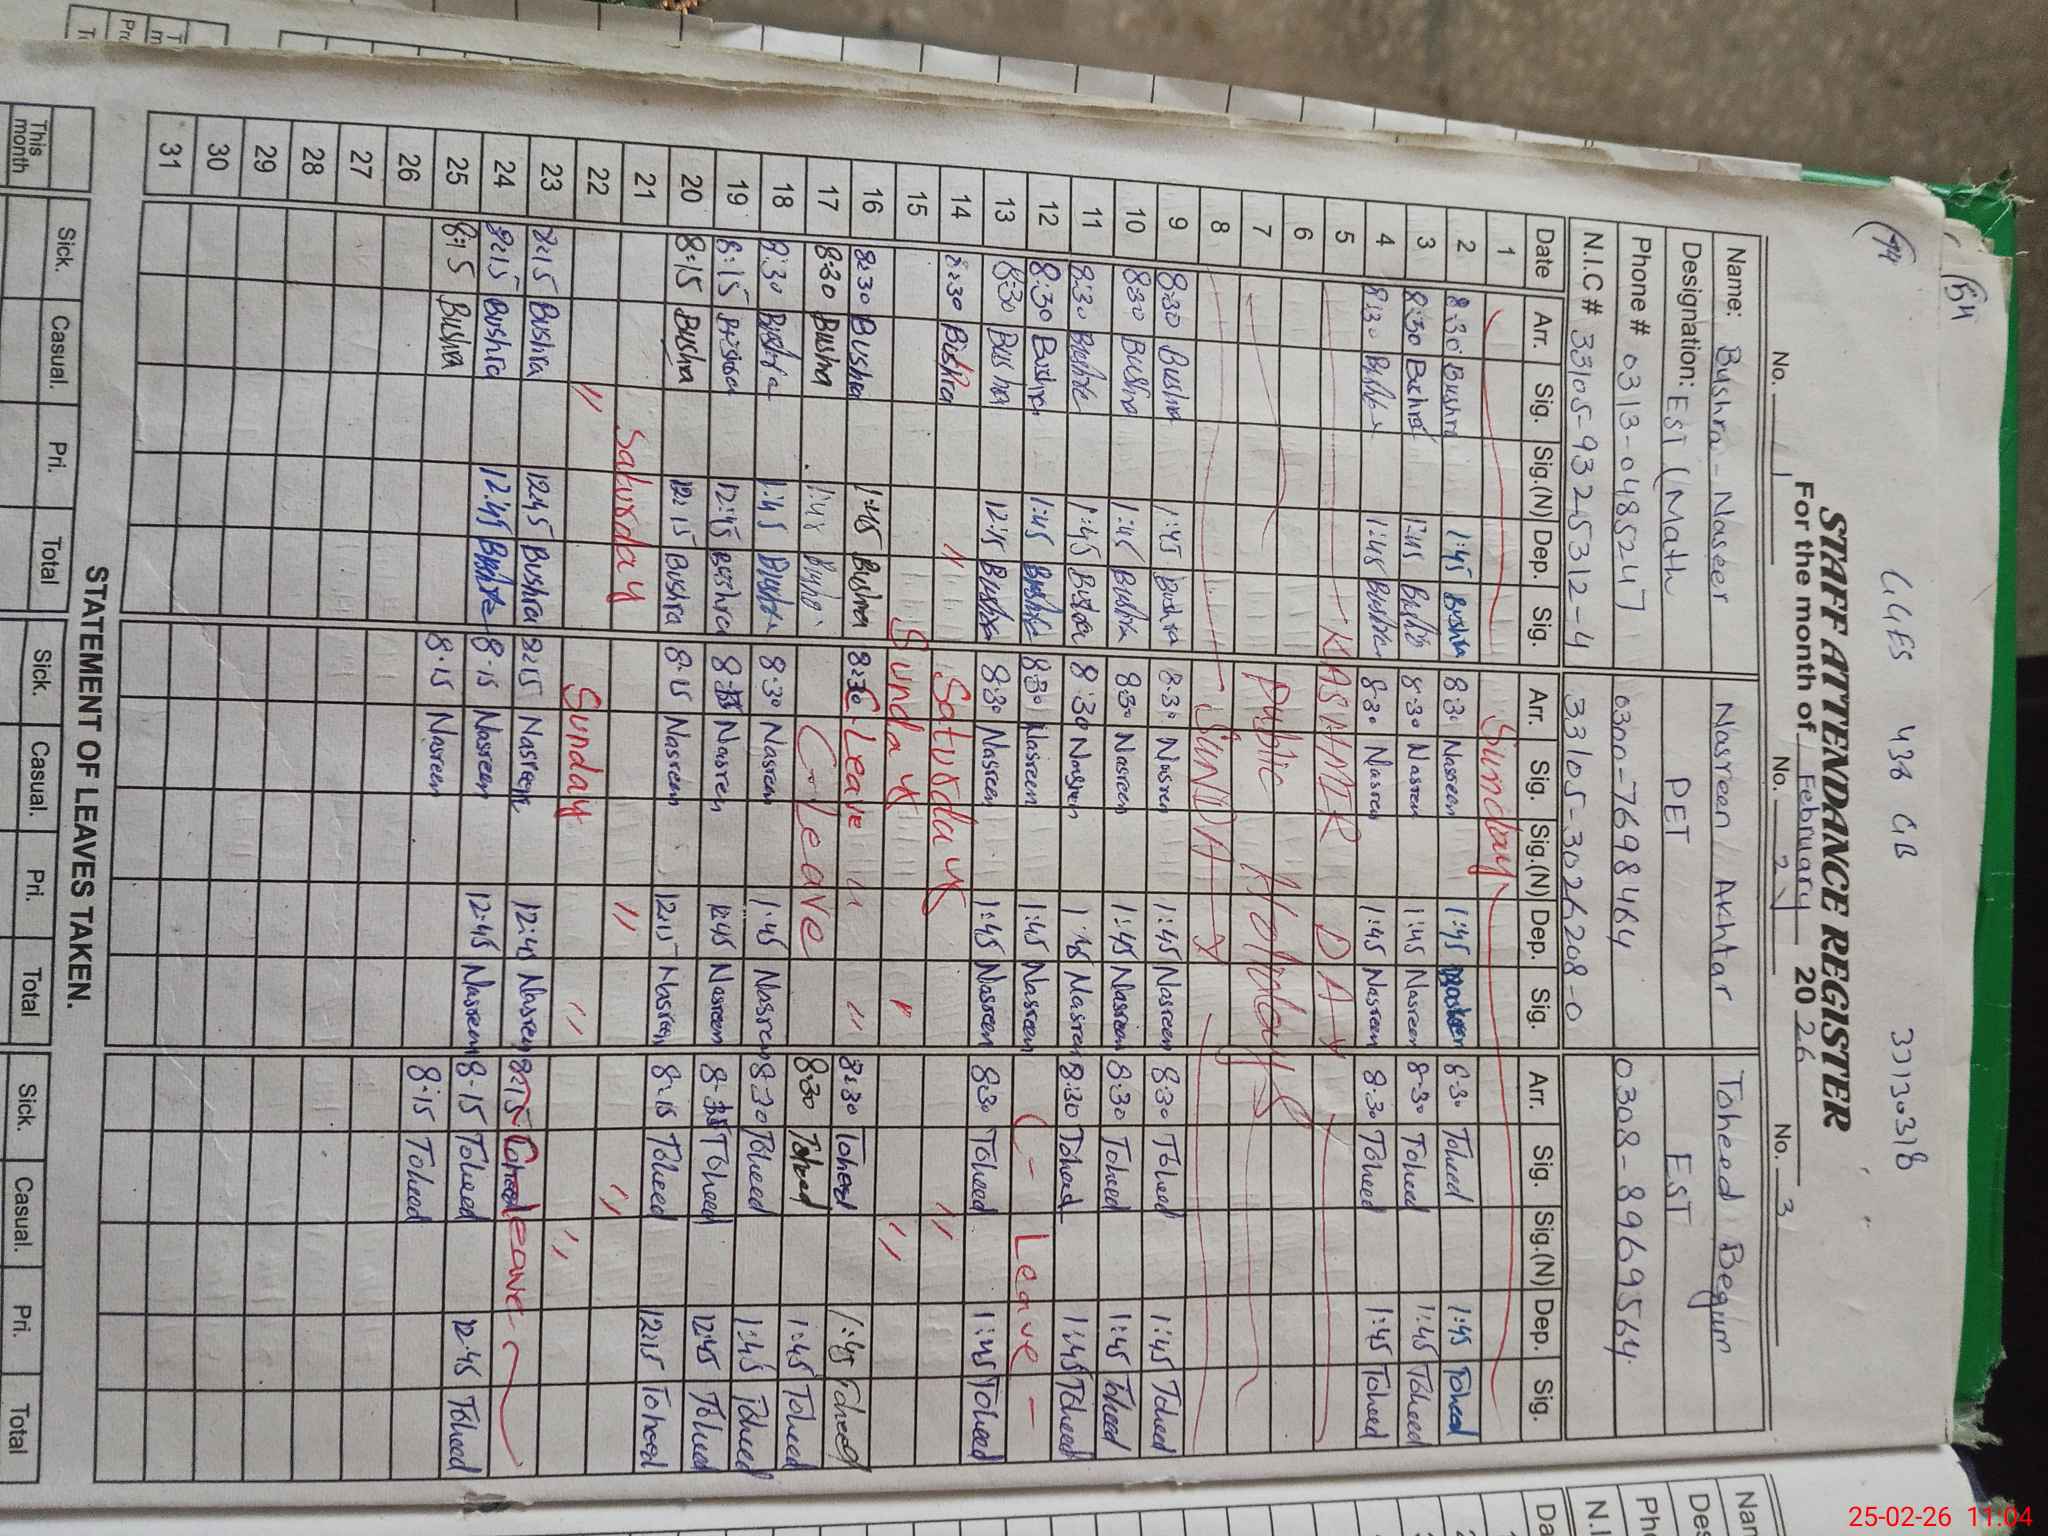 GGES 433 GB 33130318
STAFF ATTENDANCE REGISTER
For the month of February 2026
No. 1 No. 2 No. 3
Name: Bushra Naseer Nasreen Akhtar Toheed Begum
Designation: EST (Math) PET EST
Phone # 0313-0485247 0300-7698464 0308-8969564
N.I.C # 33105-93245312-4 33105-3026208-0
Date Arr. Sig. Sig.(N) Dep. Sig. Arr. Sig. Sig.(N) Dep. Sig. Arr. Sig. Sig.(N) Dep. Sig.
1 Sunday
2 8:30 Bushra 1:45 Bushra 8:30 Nasreen 1:45 8:30 Toheed 1:45 Toheed
3 8:30 Bushra 1:45 8:30 Nasreen 1:45 Nasreen 8:30 Toheed 1:45 Toheed
4 8:30 Bushra 1:45 Bushra 8:30 Nasreen 1:45 Nasreen 8:30 Toheed 1:45 Toheed
5 KASHMIR DAY
6
7 Public Holidays
8 SUNDAY
9 8:30 Bushra 1:45 Bushra 8:30 Nasren 1:45 Nasreen 8:30 Toheed 1:45 Toheed
10 8:30 Bushra 1:45 Bushra 8:30 Nasreen 1:45 Nasreen 8:30 Toheed 1:45 Toheed
11 8:30 Bushra 1:45 Bushra 8:30 Nasren 1:45 Nasren 8:30 Toheed 1:45 Toheed
12 8:30 Bushra 1:45 Bushra 8:30 Nasreen 1:45 Nasreen C- Leave -
13 8:30 Bushra 12:45 Bushra 8:30 Nasreen 1:45 Nasreen 8:30 Toheed 1:45 Toheed
14 8:30 Bushra " Saturday "
15 Sunday " "
16 8:30 Bushra 1:45 Bushra 8:30 C-Leave " " 8:30 Toheed 1:45 Toheed
17 8:30 Bushra 1:45 C-Leave 8:30 Toheed 1:45 Toheed
18 8:30 Bushra 1:45 Bushra 8:30 Nasreen 1:45 Nasren 8:30 Toheed 1:45 Toheed
19 8:15 Bushra 12:45 Bushra Nasren 12:45 Nasreen Toheed 12:45 Toheed
20 8:15 Bushra 12:15 Bushra 8:15 Nasreen 12:15 Nasreen 8:15 Toheed 12:15 Toheed
21 Saturday " "
22 " Sunday " "
23 8:15 Bushra 12:45 Bushra 8:15 Nasreen 12:45 Nasreen 8:15 Leave
24 8:15 Bushra 12:45 Bushra 8:15 Nasreen 12:45 Nasreen 8:15 Toheed 12:45 Toheed
25 8:15 Bushra 8:15 Nasreen 8:15 Toheed
26
27
28
29
30
31
STATEMENT OF LEAVES TAKEN.
Sick. Casual. Pri. Total Sick. Casual. Pri. Total Sick. Casual. Pri. Total
This month
25-02-26 11:04